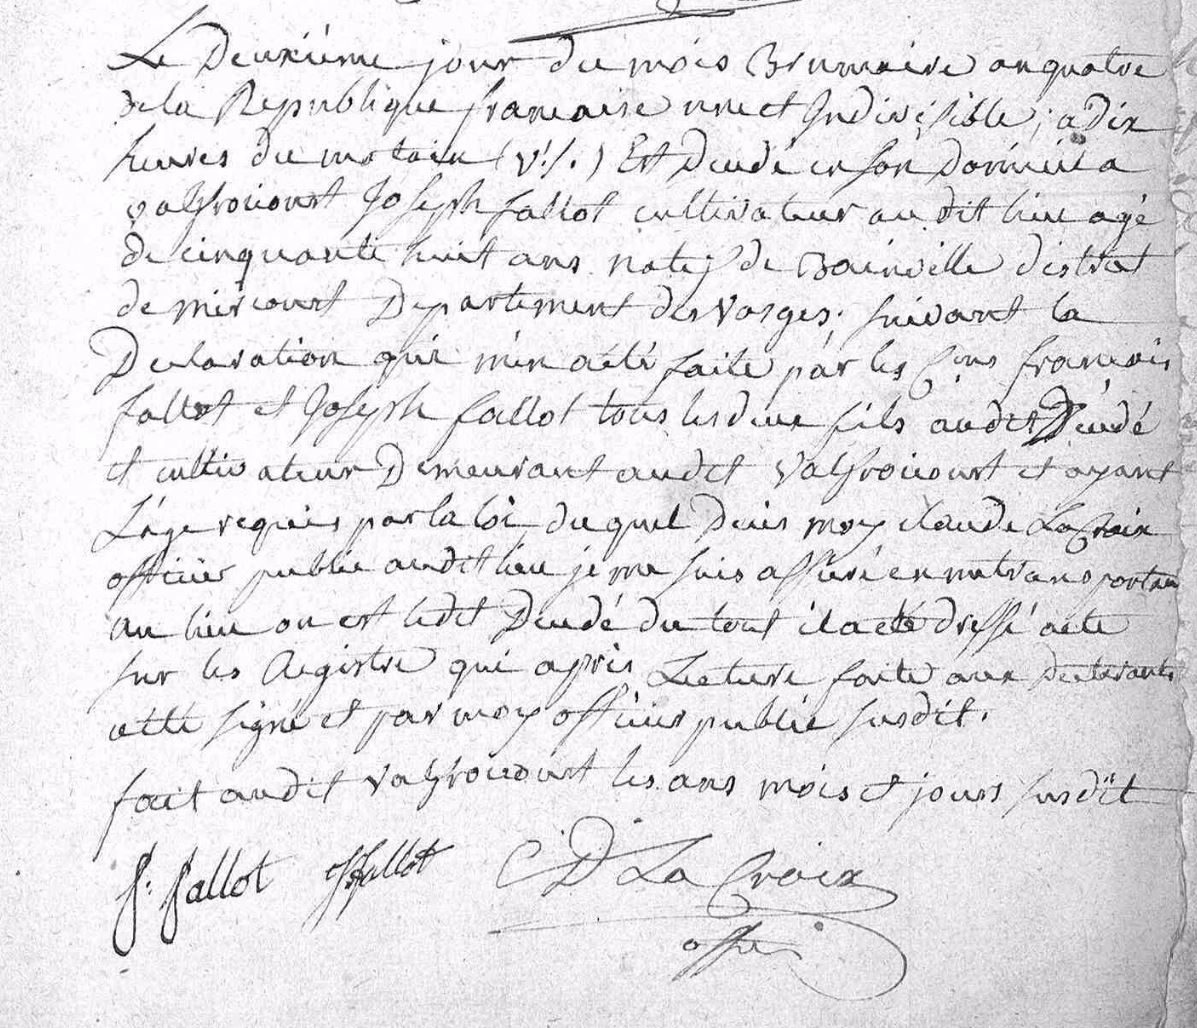 Le Deuxiéme jour du mois Brumaire an quatre
de la Republique francaise une et Indivisible, a dix
heures du matain (v.s.) Est Dcudé en son domicil a
valfroicourt Joseph fallot cultivateur au dit lieu agé
de cinquante huit ans natif de Bainville district
de mircourt Departement des Vosges; suivant la
Declaration qui m'en a été faite par les C.ens francois
fallot et Joseph fallot tous les deux fils audit Dcudé
et cultivateur Demeurant audit Valfroicourt et ayant
L'age requis par la loi duquel Deuis moy claude La Croix
officier public audit lieu je me suis assuré en m'etransportan
au lieu ou est ledit Dcudé du tout il a eté dressé acte
sur les Registre qui apris Lecture faite aux declarants
a été signé et par moy officier public susdit.
fait audit Valfroicourt les ans mois et jours susdit
f. fallot J fallot C D La Croix
offier